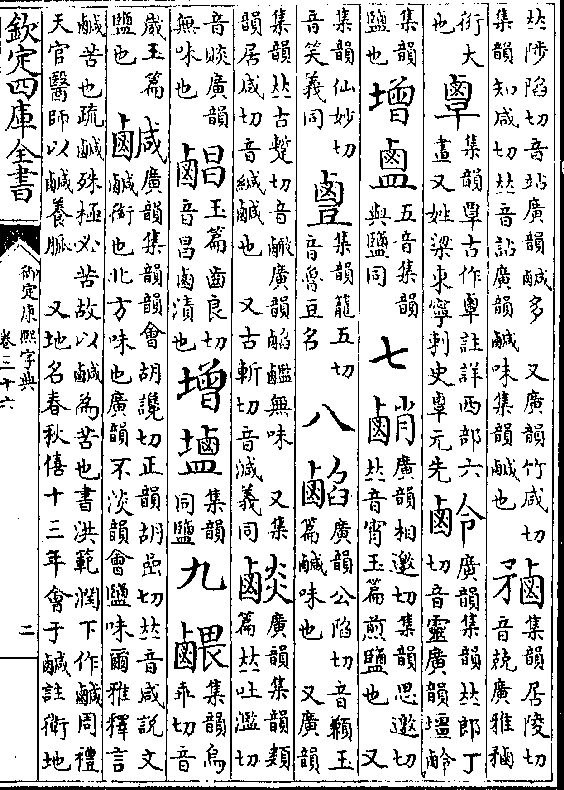 𠀤陟陷切音站廣韻鹹多 又廣韻竹咸切
集韻知咸切𠀤音詀廣韻鹹味集韻鹹也
集韻居陵切
音兢廣雅
銜大
也
集韻覃古作𪉧註詳西部六
畫又姓梁東寧刺史𪉧元先
廣韻集韻𠀤郎丁
切音靈廣韻
集韻
鹽也
增
五音集韻
與鹽同
七
廣韻相邀切集韻思邀切
𠀤音宵玉篇煎鹽也 又
集韻仙妙切
音笑義同
集韻籠五切
音魯豆名
八
廣韻公陷切音
玉
篇鹹味也 又廣韻
集韻𠀤古蹔切音
廣韻
無味 又集
韻居咸切音緘鹹也 又古斬切音減義同
廣韻集韻類
篇𠀤吐濫切
音賧廣韻
無味也
玉篇齒良切
音昌鹵漬也
增
集韻
同鹽
九
集韻烏
乖切音
崴玉篇
鹽也
鹹
廣韻集韻韻會胡讒切正韻胡嵒切𠀤音咸說文
鹹銜也北方味也廣韻不淡韻會鹽味爾雅釋言
鹹苦也疏鹹殊極必苦故以鹹為苦也書洪範潤下作鹹周禮
天官醫師以鹹養脈 又地名春秋僖十三年會于鹹註衛地
欽定四庫全書
御定康熙字典
卷三十六
二